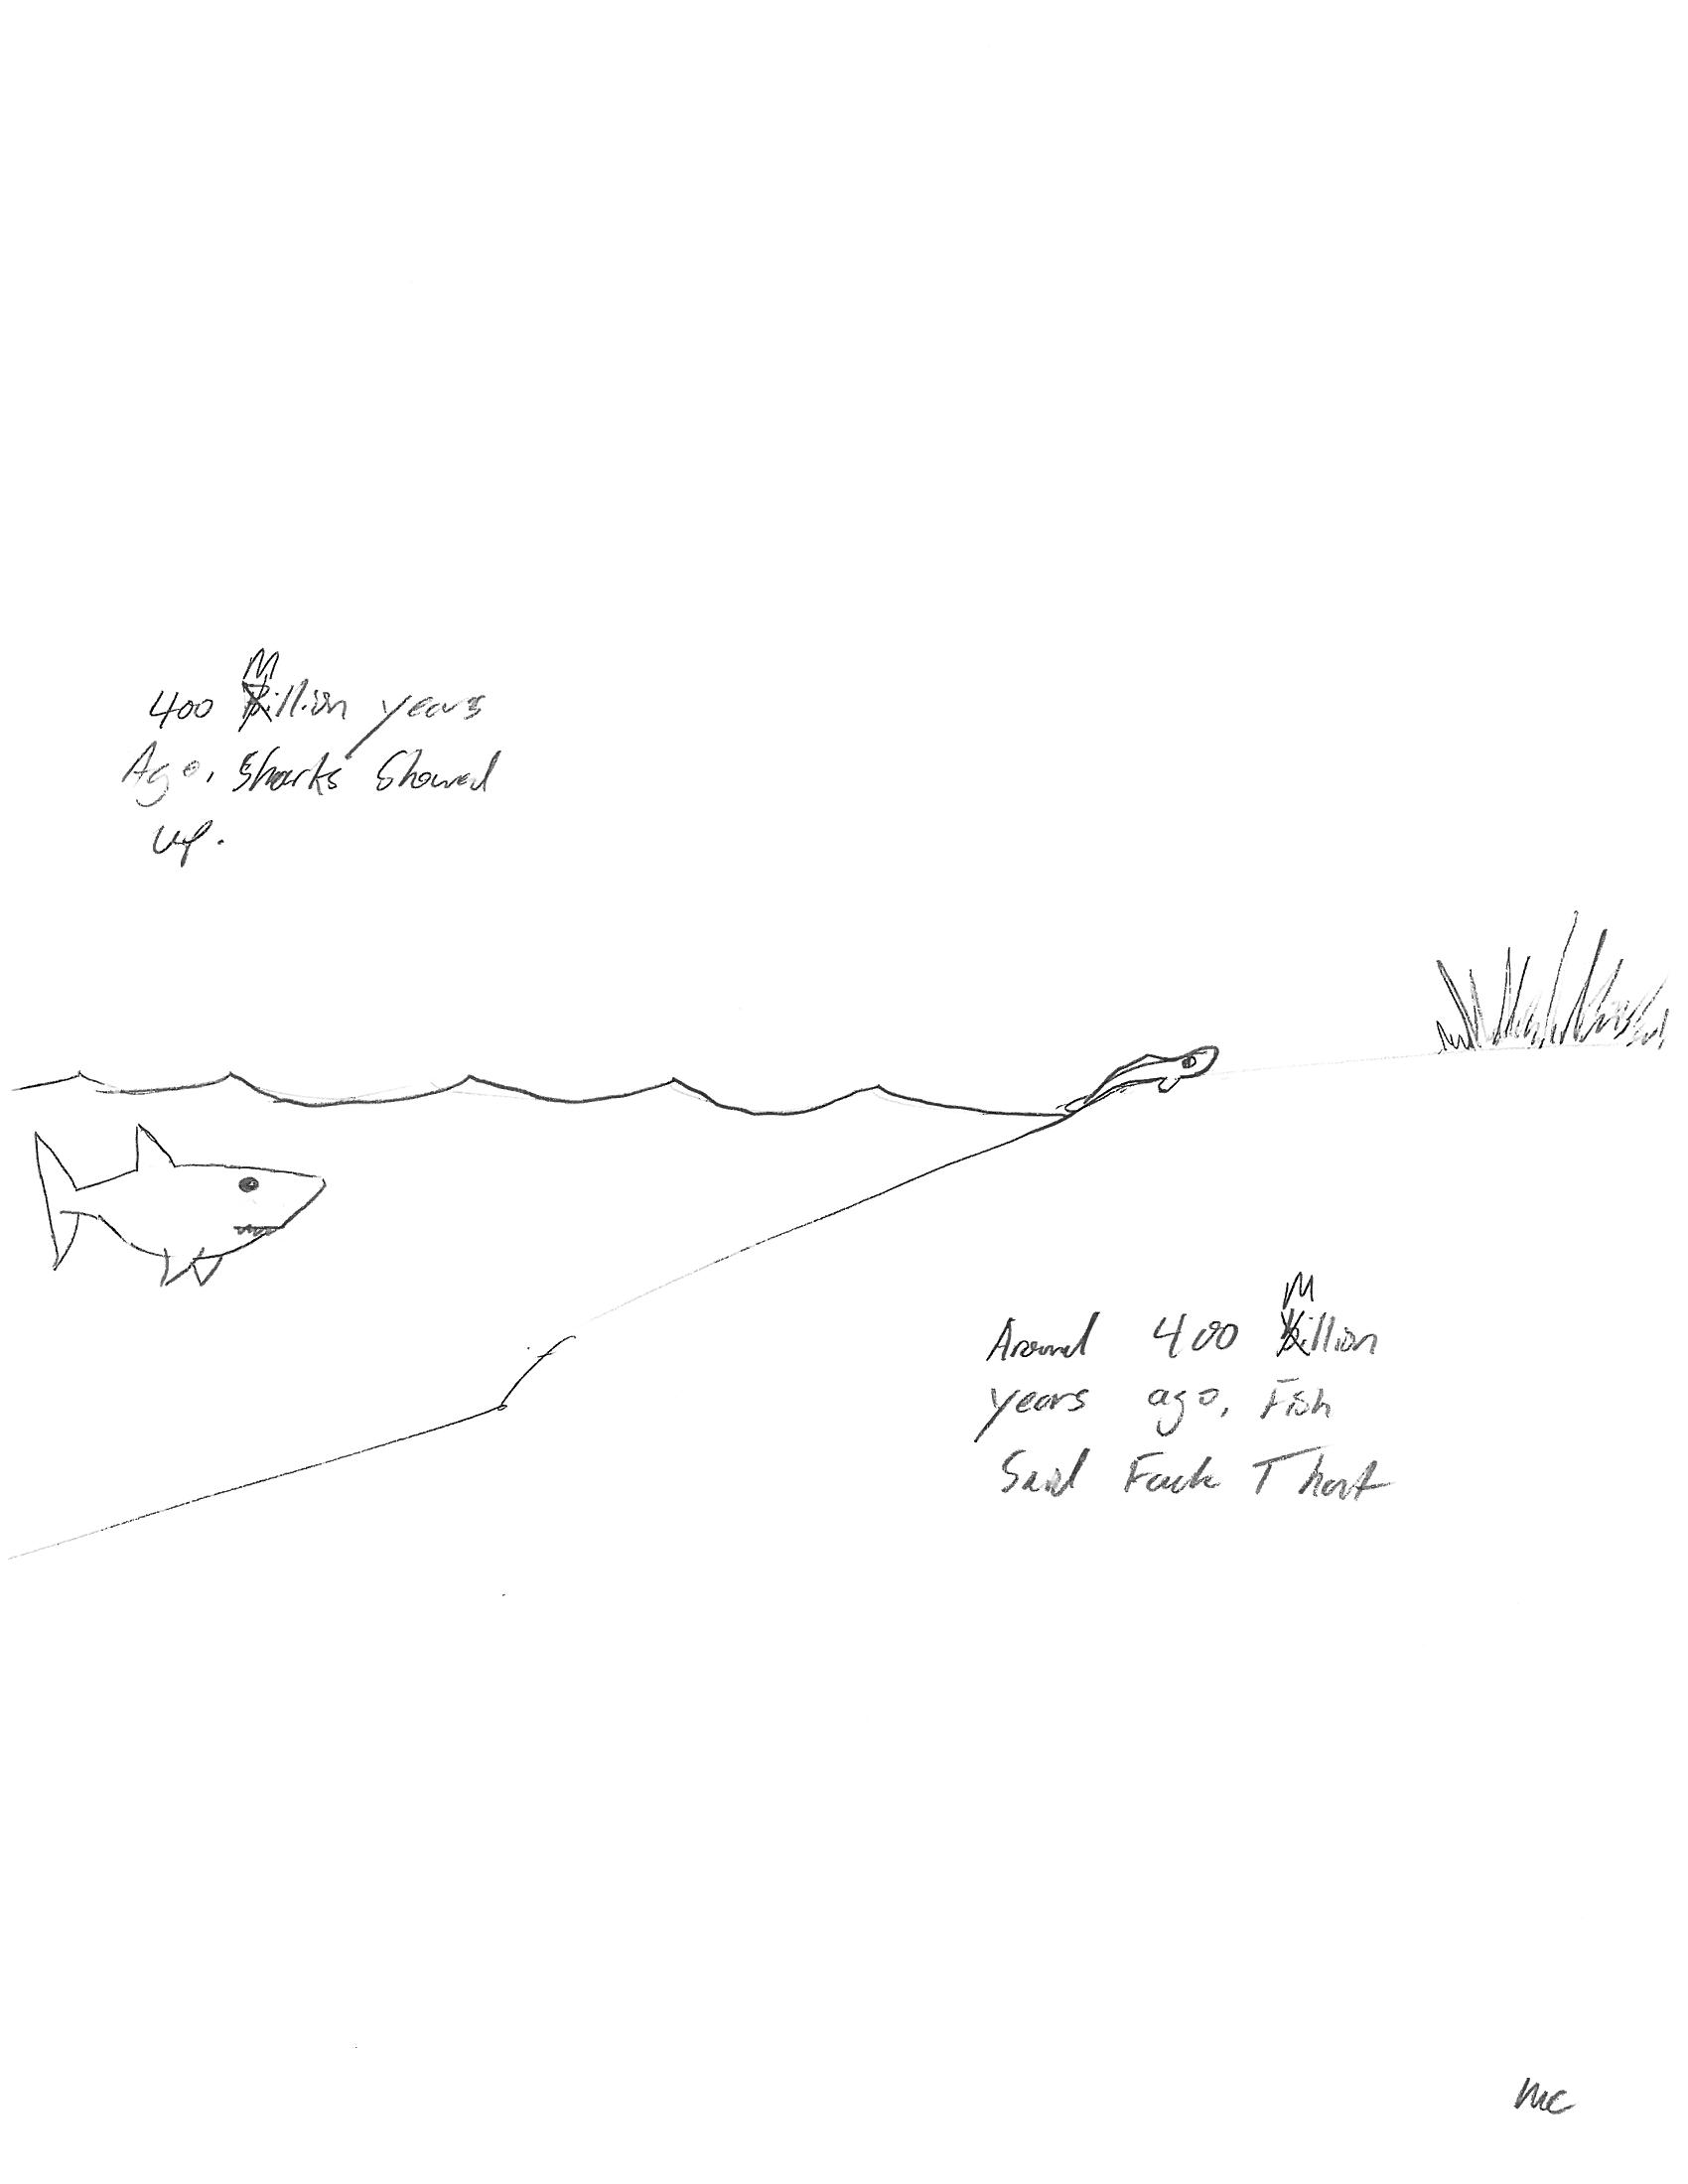 400 Million years
Ago, Sharks Showed
up.
Around 400 Million
years ago, Fish
Said Fuck That
MC